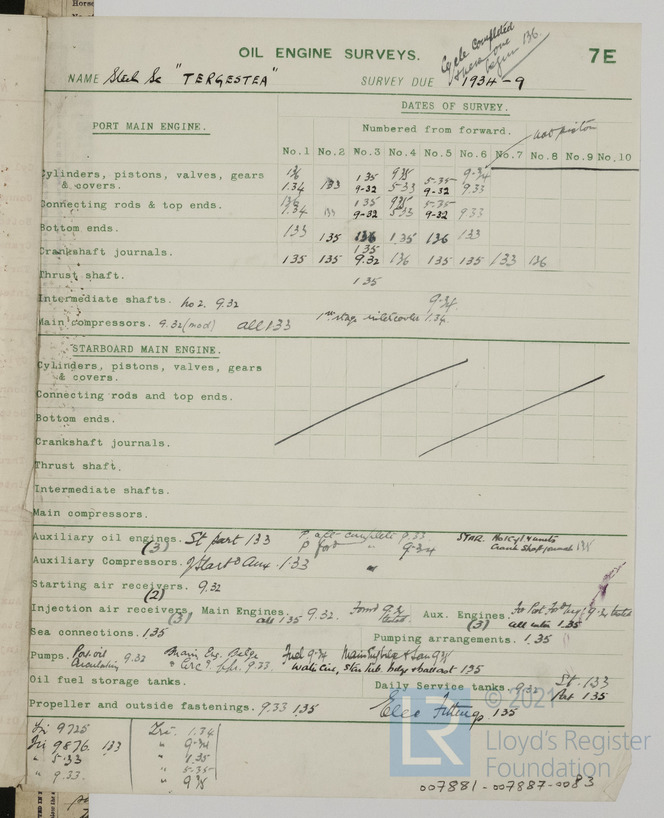 Cycle completed
136.
OIL ENGINE SURVEYS.
7E
NAME Steel Sc "TERGESTEA" SURVEY DUE 1934-9
DATES OF SURVEY.
PORT MAIN ENGINE.
Numbered from forward. not piston
No.1 No.2 No.3 No.4 No.5 No.6 No.7 No.8 No.9 No.10
136 1.35 9.35 5-35 9-34
Cylinders, pistons, valves, gears & covers. 1.34 133 9-32 5-33 9-32 9.33
136 1.35 9.35 5-35
Connecting rods & top ends. 1.34 133 9-32 5-33 9-32 933
Bottom ends. 133 135 136 1.35 136 133
1.35
Crankshaft journals. 135 135 9.32 136 135 135 133 136
Thrust shaft. 1.35
Intermediate shafts. No 2. 9.32 9.34
Main compressors. 9.32 (mod) all 133 1st stage 1.34.
STARBOARD MAIN ENGINE.
Cylinders, pistons, valves, gears
& covers.
Connecting rods and top ends.
Bottom ends.
Crankshaft journals.
Thrust shaft.
Intermediate shafts.
Main compressors.
Auxiliary oil engines. (3) St part 133 P aft complete 9.33. STAR. No 1 cyl & units
P ford " 9.34 Crank Shaft journals 135
Auxiliary Compressors. Start & Aux. 1.33 "
Starting air receivers. (2) 9.32
Injection air receivers, Main Engines. (3) all 135 9.32. Ford 9.32 tested. Aux. Engines. (3) 9.32 tested
all 1.35
Sea connections. 135 Pumping arrangements. 1.35
Pumps. Port oil Circulating 9.32 Main Eng. Bilge & Circ. 9.33. Fuel 9.34
Water Circ, Stn fuel bilge & ballast 135
Oil fuel storage tanks. Daily Service tanks. 9.32 St. 133
Port 135
Propeller and outside fastenings. 9.33 135 Elec Fittings 135
Tri 9725 Tri. 1.34
Tri 9876 133 " 9.34
" 5.33 " 1.35
" 9.33. " 5.35
" 9.35
© 2021
LR
Lloyd's Register
Foundation
007881-007887-0083